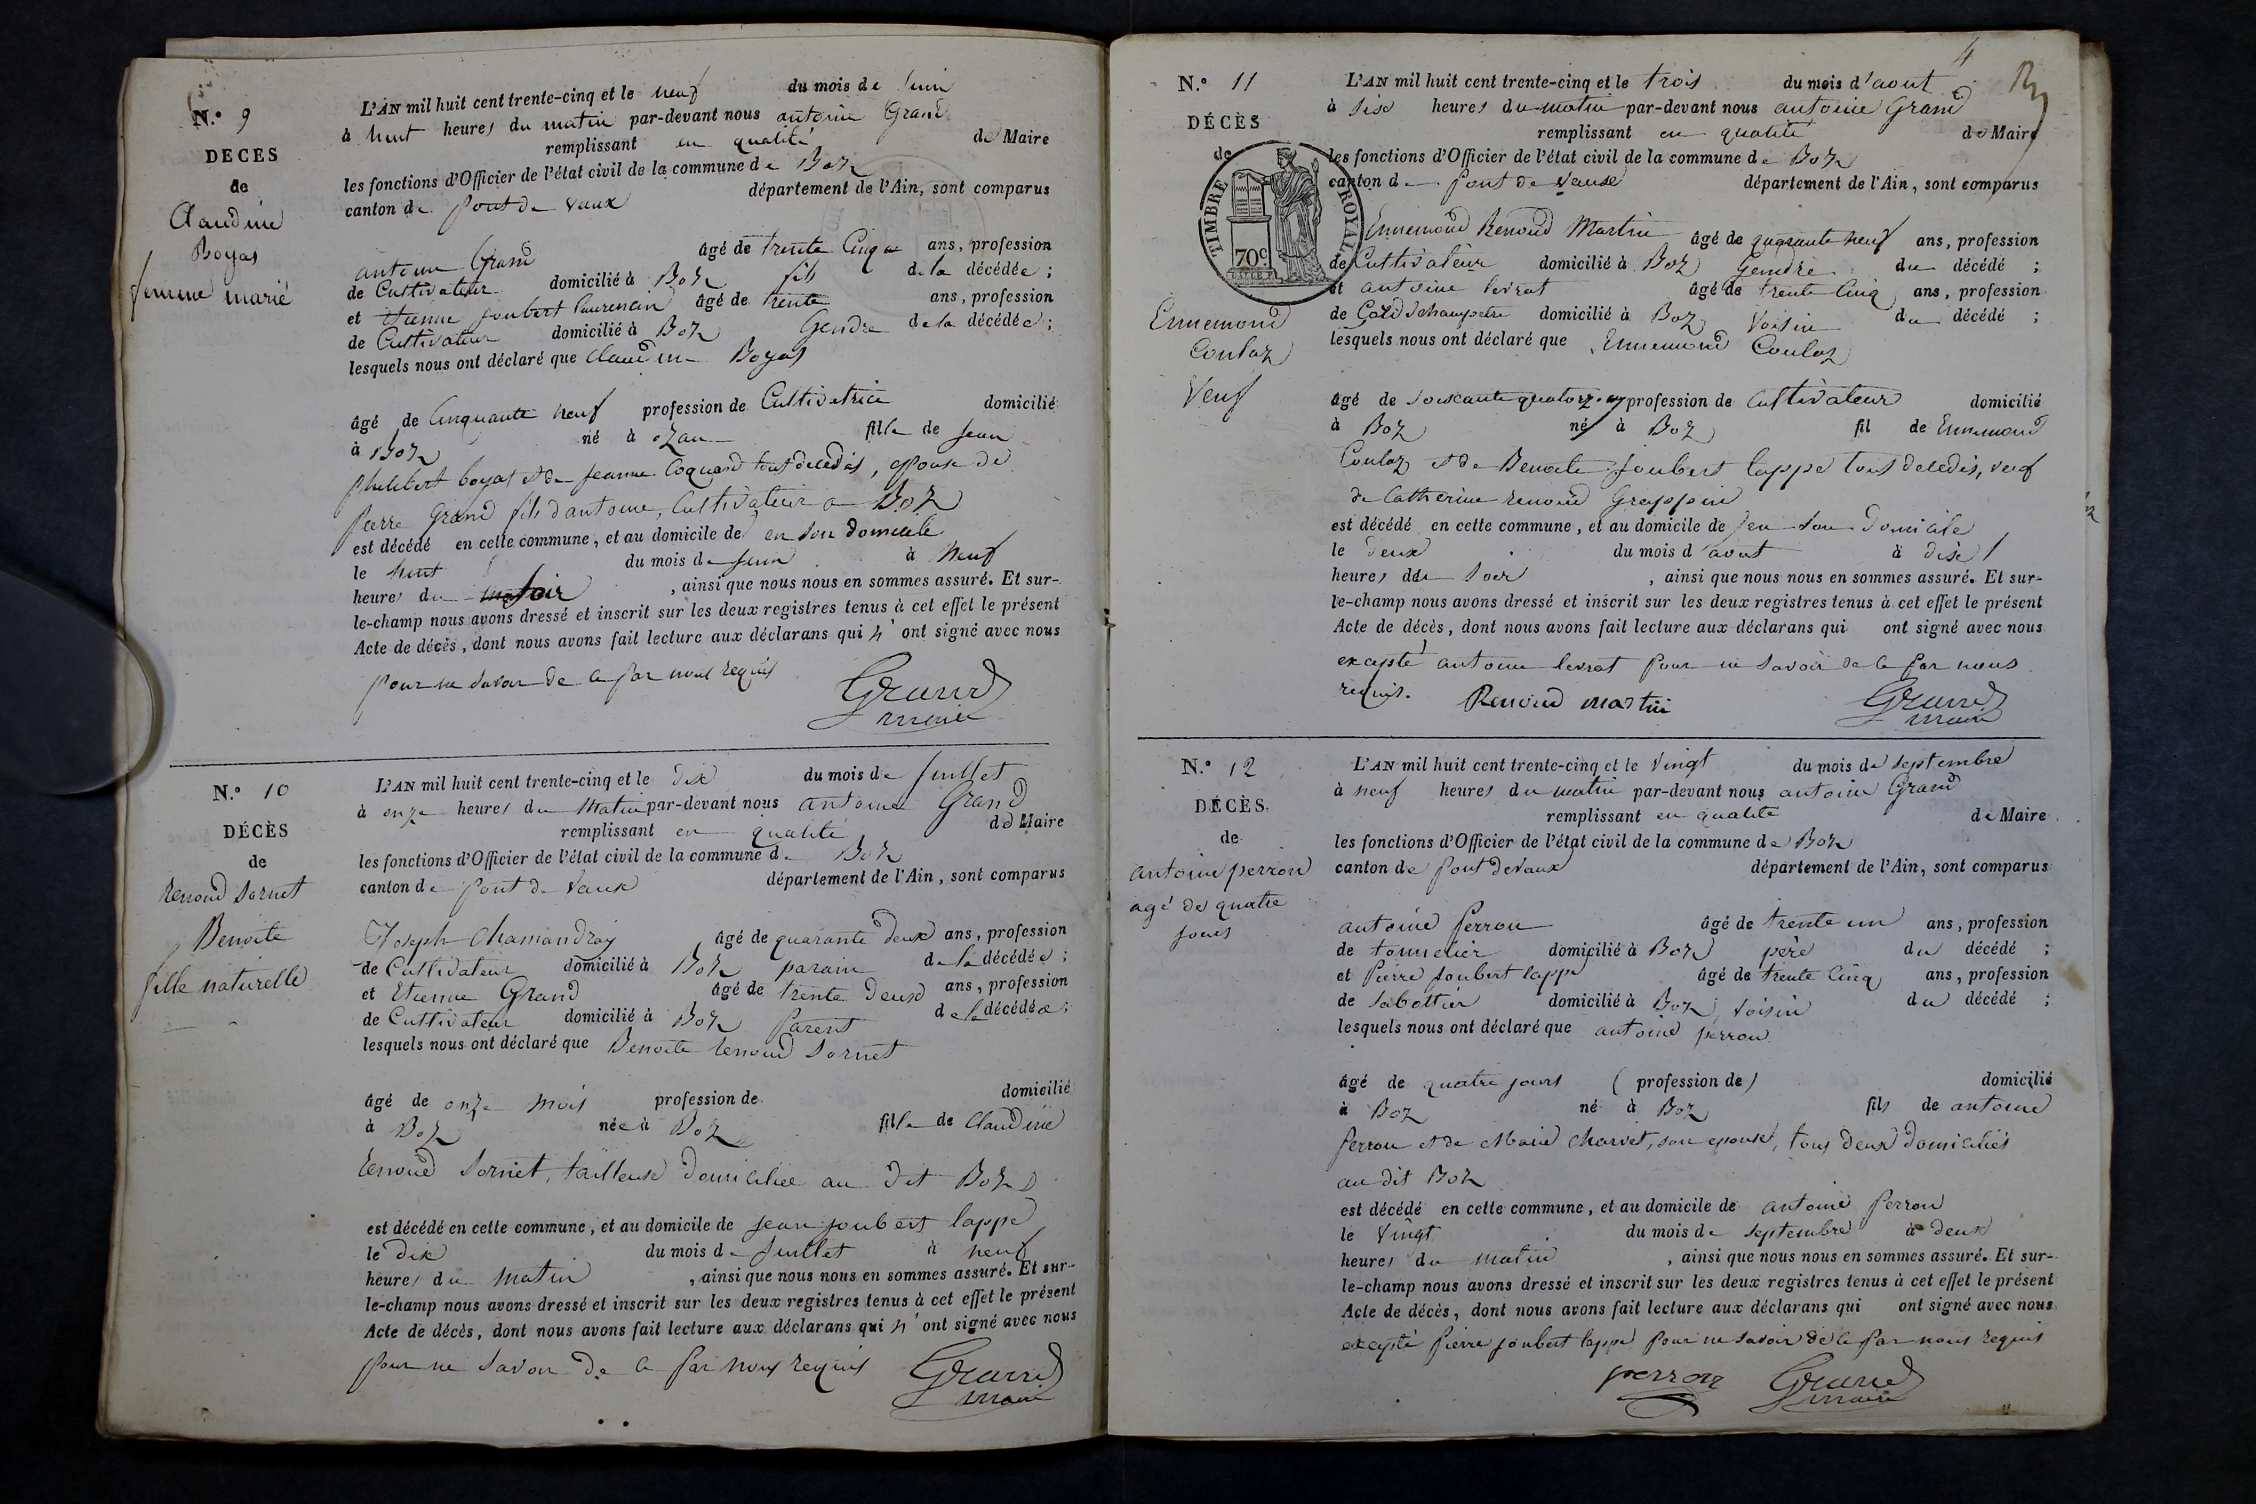 N.º 9
DÉCÈS
de
Claudine
Boyat
femme marié
L'AN mil huit cent trente-cinq et le neuf du mois de Juin
à huit heures du matin par-devant nous antoine Grand
remplissant en qualité de Maire
les fonctions d'Officier de l'état civil de la commune de Boz
canton de pont de vaux département de l'Ain, sont comparus
antoine Grand âgé de trente Cinq ans, profession
de Cultivateur domicilié à Boz fils de la décédée ;
et etienne joubert laurencin âgé de trente ans, profession
de Cultivateur domicilié à Boz Gendre de la décédée ;
lesquels nous ont déclaré que Claudine Boyat
âgé de Cinquante neuf profession de Cultivatrice domicilié
à Boz né à ozan fille de jean
philibert boyat et de jeanne Coquard tout decedés, epouse de
pierre Grand fils d'antoine, Cultivateur a Boz
est décédé en cette commune, et au domicile de en son domicile
le huit du mois de juin à neuf
heures du soir , ainsi que nous nous en sommes assuré. Et sur-
le-champ nous avons dressé et inscrit sur les deux registres tenus à cet effet le présent
Acte de décès, dont nous avons fait lecture aux déclarans qui n' ont signé avec nous
pour ne savoir de ce par nous requis
Grand
maire
N.º 10
DÉCÈS
de
Renoud Sornet
Benoite
fille naturelle
L'AN mil huit cent trente-cinq et le dix du mois de juillet
à onze heures du Matin par-devant nous antoine Grand
remplissant en qualité de Maire
les fonctions d'Officier de l'état civil de la commune de Boz
canton de pont de Vaux département de l'Ain, sont comparus
Joseph Chamandray âgé de quarante deux ans, profession
de Cultivateur domicilié à Boz parain de la décédée ;
et Etienne Grand âgé de trente deux ans, profession
de Cultivateur domicilié à Boz parent de la décédée ;
lesquels nous ont déclaré que Benoite renoud Sornet
âgé de onze mois profession de domicilié
à Boz née à Boz fille de Claudine
renoud Sornet, tailleuse domiciliée au dit Boz
est décédé en cette commune, et au domicile de jean joubert lappe
le dix du mois de juillet à neuf
heures du matin , ainsi que nous nous en sommes assuré. Et sur-
le-champ nous avons dressé et inscrit sur les deux registres tenus à cet effet le présent
Acte de décès, dont nous avons fait lecture aux déclarans qui n' ont signé avec nous
pour ne savoir de ce par nous requis
Grand
maire
4
N.º 11
DÉCÈS
de
TIMBRE ROYAL
70c
Ennemond
Coulaz
Veuf
L'AN mil huit cent trente-cinq et le trois du mois d'aout
à six heures du matin par-devant nous antoine Grand
remplissant en qualité de Maire
les fonctions d'Officier de l'état civil de la commune de Boz
canton de pont de vaux département de l'Ain, sont comparus
Ennemond Renoud Martin âgé de quarante neuf ans, profession
de Cultivateur domicilié à Boz Gendre du décédé ;
et antoine levrat âgé de trente Cinq ans, profession
de Gard champetre domicilié à Boz Voisin du décédé ;
lesquels nous ont déclaré que Ennemond Coulaz
âgé de soixante quatorze profession de Cultivateur domicilié
à Boz né à Boz fil de Ennemond
Coulaz et de Benoite joubert lappe tous decedés, veuf
de Catherine renoud Grappin
est décédé en cette commune, et au domicile de son domicile
le deux du mois d'aout à dix
heures du soir , ainsi que nous nous en sommes assuré. Et sur-
le-champ nous avons dressé et inscrit sur les deux registres tenus à cet effet le présent
Acte de décès, dont nous avons fait lecture aux déclarans qui ont signé avec nous
excepté antoine levrat pour ne savoir de ce par nous
requis. Renoud martin Grand
maire
N.º 12
DÉCÈS
de
antoine perron
agé de quatre
jours
L'AN mil huit cent trente-cinq et le Vingt du mois de septembre
à neuf heures du matin par-devant nous antoine Grand
remplissant en qualité de Maire
les fonctions d'Officier de l'état civil de la commune de Boz
canton de pont de vaux département de l'Ain, sont comparus
antoine perron âgé de trente un ans, profession
de tonnelier domicilié à Boz père du décédé ;
et Pierre joubert lappe âgé de trente Cinq ans, profession
de Sabottier domicilié à Boz, Voisin du décédé ;
lesquels nous ont déclaré que antoine perron
âgé de quatre jours (profession de) domicilié
à Boz né à Boz fils de antoine
perron et de Marie Charvet, son epouse, tous deux domiciliés
au dit Boz
est décédé en cette commune, et au domicile de antoine perron
le Vingt du mois de septembre à deux
heures du matin , ainsi que nous nous en sommes assuré. Et sur-
le-champ nous avons dressé et inscrit sur les deux registres tenus à cet effet le présent
Acte de décès, dont nous avons fait lecture aux déclarans qui ont signé avec nous
excepté pierre joubert lappe pour ne savoir de ce par nous requis
perron Grand
maire